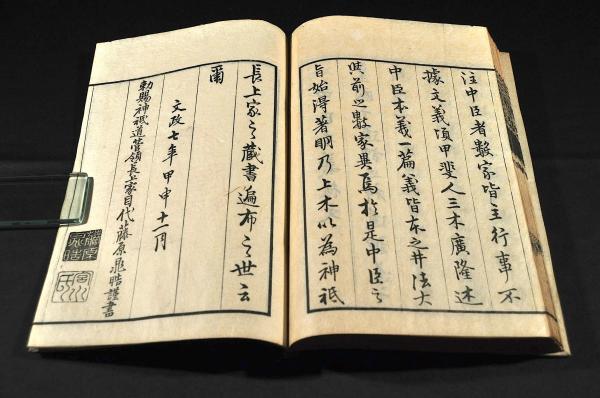 注中臣者數家皆主行事不
據文義頃甲斐人三木廣隆述
中臣本義一篇義皆本之井法大
與前之數家異焉於是中臣之
旨始得著明乃上木以為神祇
長上家之藏書遍布之世云
爾
文政七年甲申十一月
勅賜神祇道管領長上家目代藤原皃晧謹書